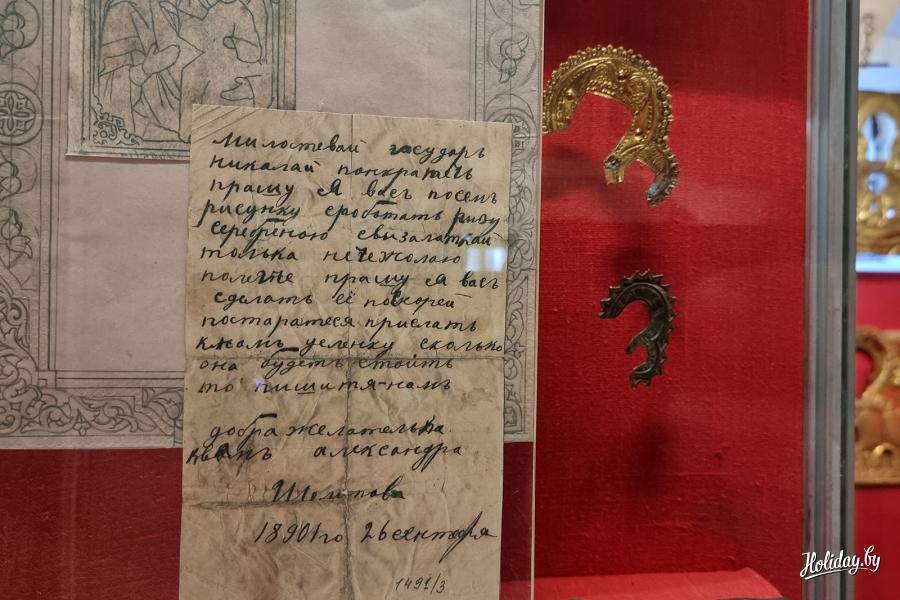 Милостевай государь
никалай понкратечь
прашу Я васъ посемъ
рисунку сроботать ризу
серебреною свызалаткай
толька нетежолаю
полегче прашу Я васъ
сделать её поскорей
постаратеся прислать
кжамъ уеленку сколько
она будетъ стоить
то пишитя намъ
добра желателька
александра
Шолитова
18901го 26 сентября
1491/3
Holiday.by